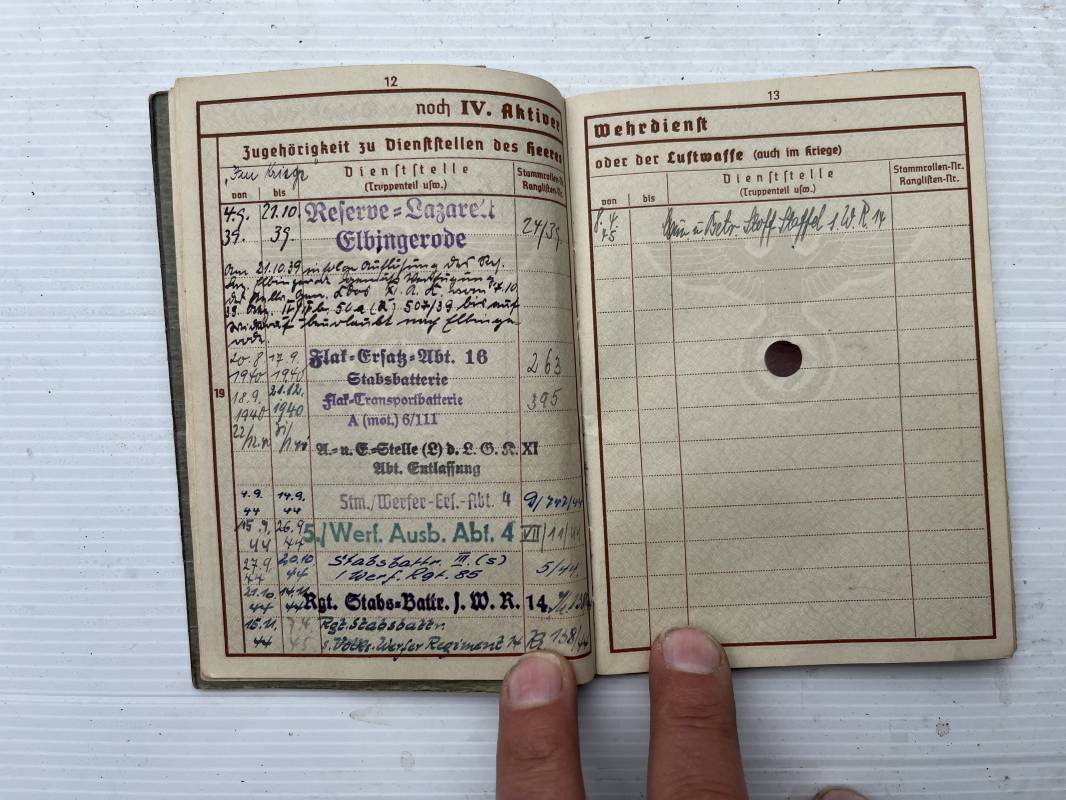 12
noch IV. Aktiver
Zugehörigkeit zu Dienststellen des Heeres
"Im Kriege"
Dienststelle
(Truppenteil usw.)
Stammrollen-Nr.
Ranglisten-Nr.
von bis
4.9. 21.10. Reserve-Lazarett
39. 39. Elbingerode 24/39.
Am 21.10.39 infolge Auflösung des Res.
Laz. Elbingerode
507/39 bis auf
beurlaubt nach Elbinge-
rode.
20.8 17.9. Flak-Ersatz-Abt. 16 263
1940 1940 Stabsbatterie
18.9. 21.12. Flak-Transportbatterie 395
1940 1940 A (mot.) 6/III
A.- u. E-Stelle (L) d. L. G. K. XI
Abt. Entlassung
19
4.9. 14.9. Stm./Werfer-Ers.-Abt. 4
44 44
15.9. 26.9. 5./Werf. Ausb. Abt. 4 VII/11/44
44 44
27.9. 20.10. Stabsbattr. III. (s)
44 44 / Werf. Rgt. 85 5/44.
21.10. 14.11. Rgt. Stabs-Battr. s. W. R. 14
44 44
15.11. 7.4. Rgt. Stabsbattr.
44 45. s. Volks-Werfer Regiment 14 138/44
13
Wehrdienst
oder der Luftwaffe (auch im Kriege)
Dienststelle
(Truppenteil usw.)
Stammrollen-Nr.
Ranglisten-Nr.
von bis
8.4. Mun u Betr Stoff Staffel 1. W. R. 14
45